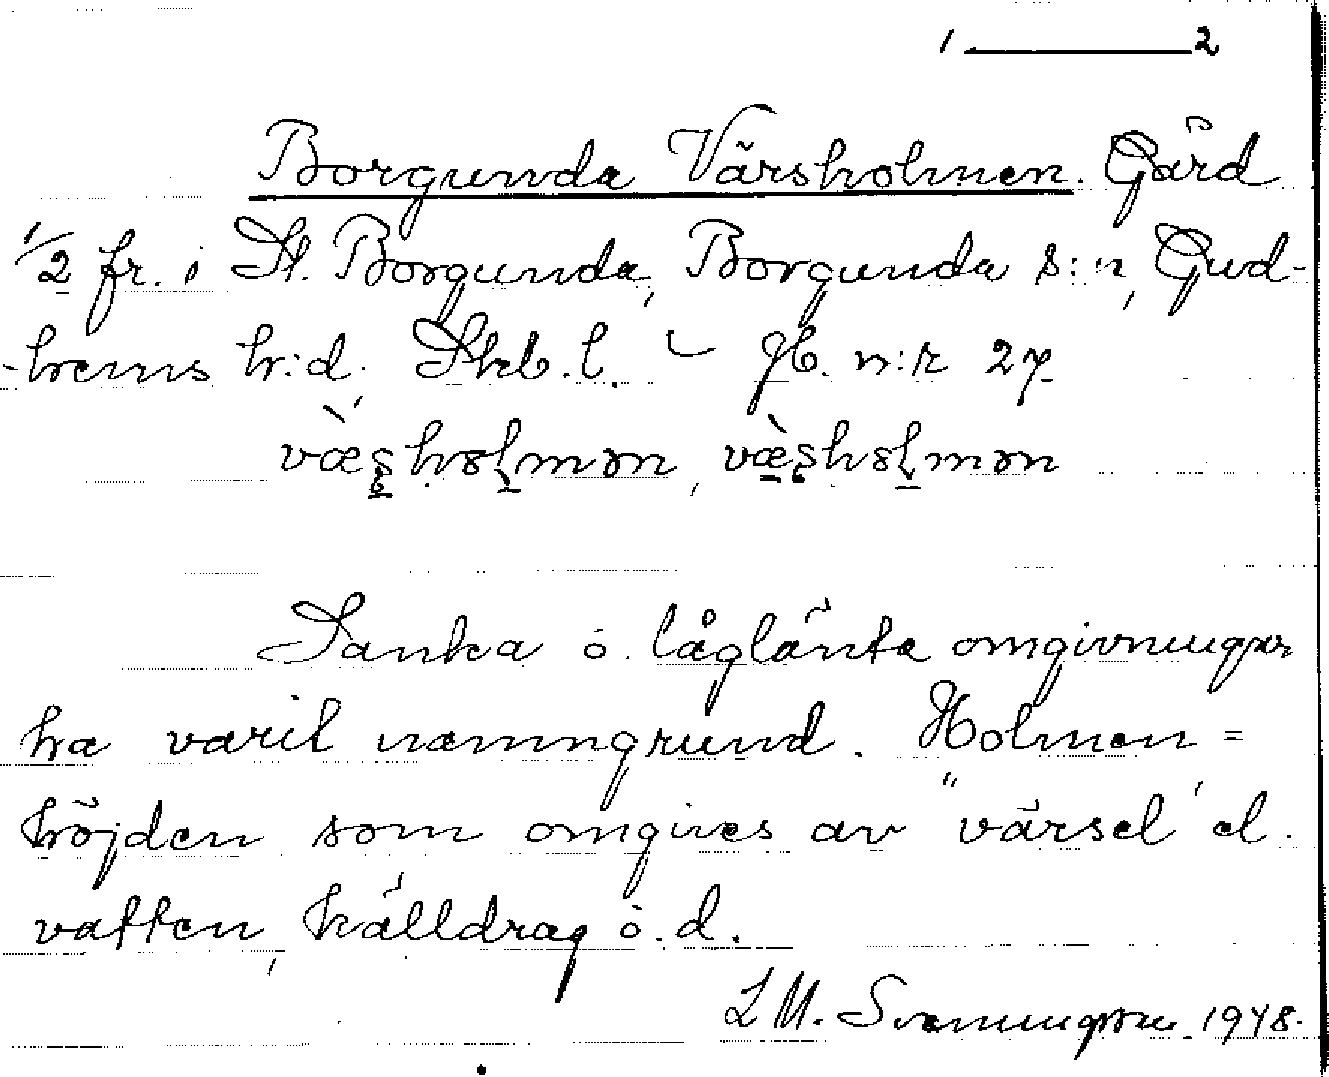 1 — 2
Borgunda Vårsholmen. Gård
1/2 fr. i St. Borgunda, Borgunda s:n, Gud-
-hems h:d, Skb. l. – jb. n:r 27.
væ̀s̨hɞl̠mən, væ̀s̨hɞl̠mən
Sanka o. låglänta omgivningar
ha varit namngrund. Holmen =
höjden som omgives av "vårsel" el.
vatten, källdrag o. d.
L M. Svenungsson 1948.